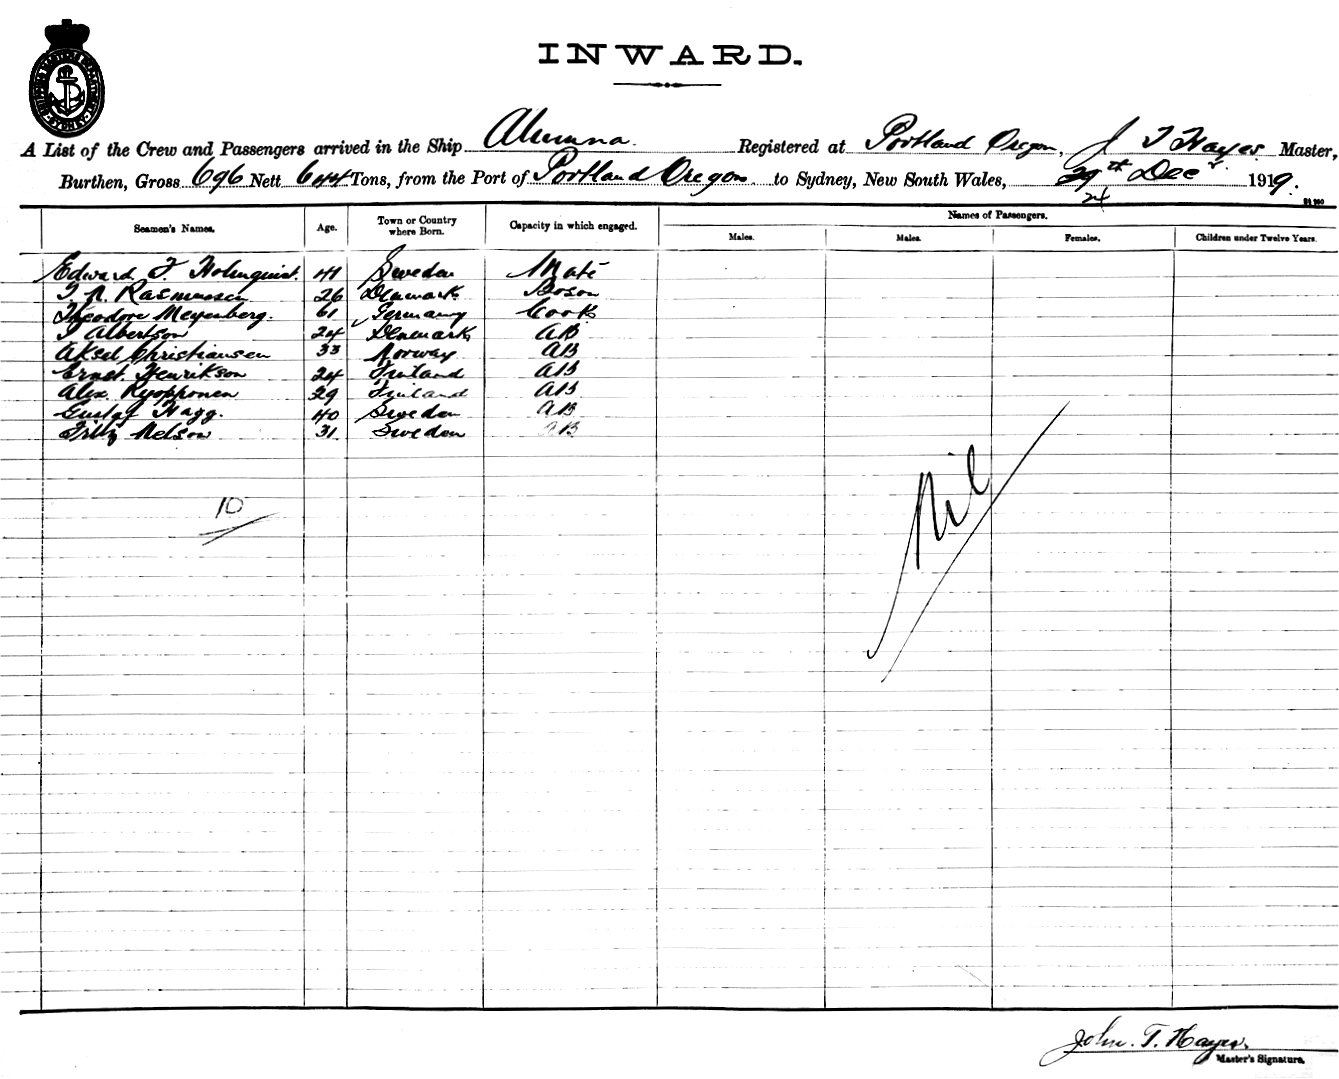 INWARD.
SHIPPING MASTER'S DEPARTMENT SYDNEY
A List of the Crew and Passengers arrived in the Ship Alumna. Registered at Portland Oregon, J T Hayes Master,
Burthen, Gross 696 Nett 644 Tons, from the Port of Portland Oregon. to Sydney, New South Wales, 29th Decr. 1919.
24
Seamen's Names. Age. Town or Country where Born. Capacity in which engaged. Names of Passengers.
Males. Males. Females. Children under Twelve Years.
Edward F. Holmquist. 41 Sweden Mate
T. N. Rasmussen 26 Denmark Boson
Theodore Meyenberg. 61 Germany Cook
I Albertson 24 Denmark AB
Aksel Christiansen 33 Norway AB
Ernst Henrikson 24 Finland AB
Alex. Kyopponen 29 Finland AB
Gustaf Hagg. 40 Sweden AB
Fritz Nelson 31. Sweden AB
Nil
10
John. T. Hayes.
Master's Signature.